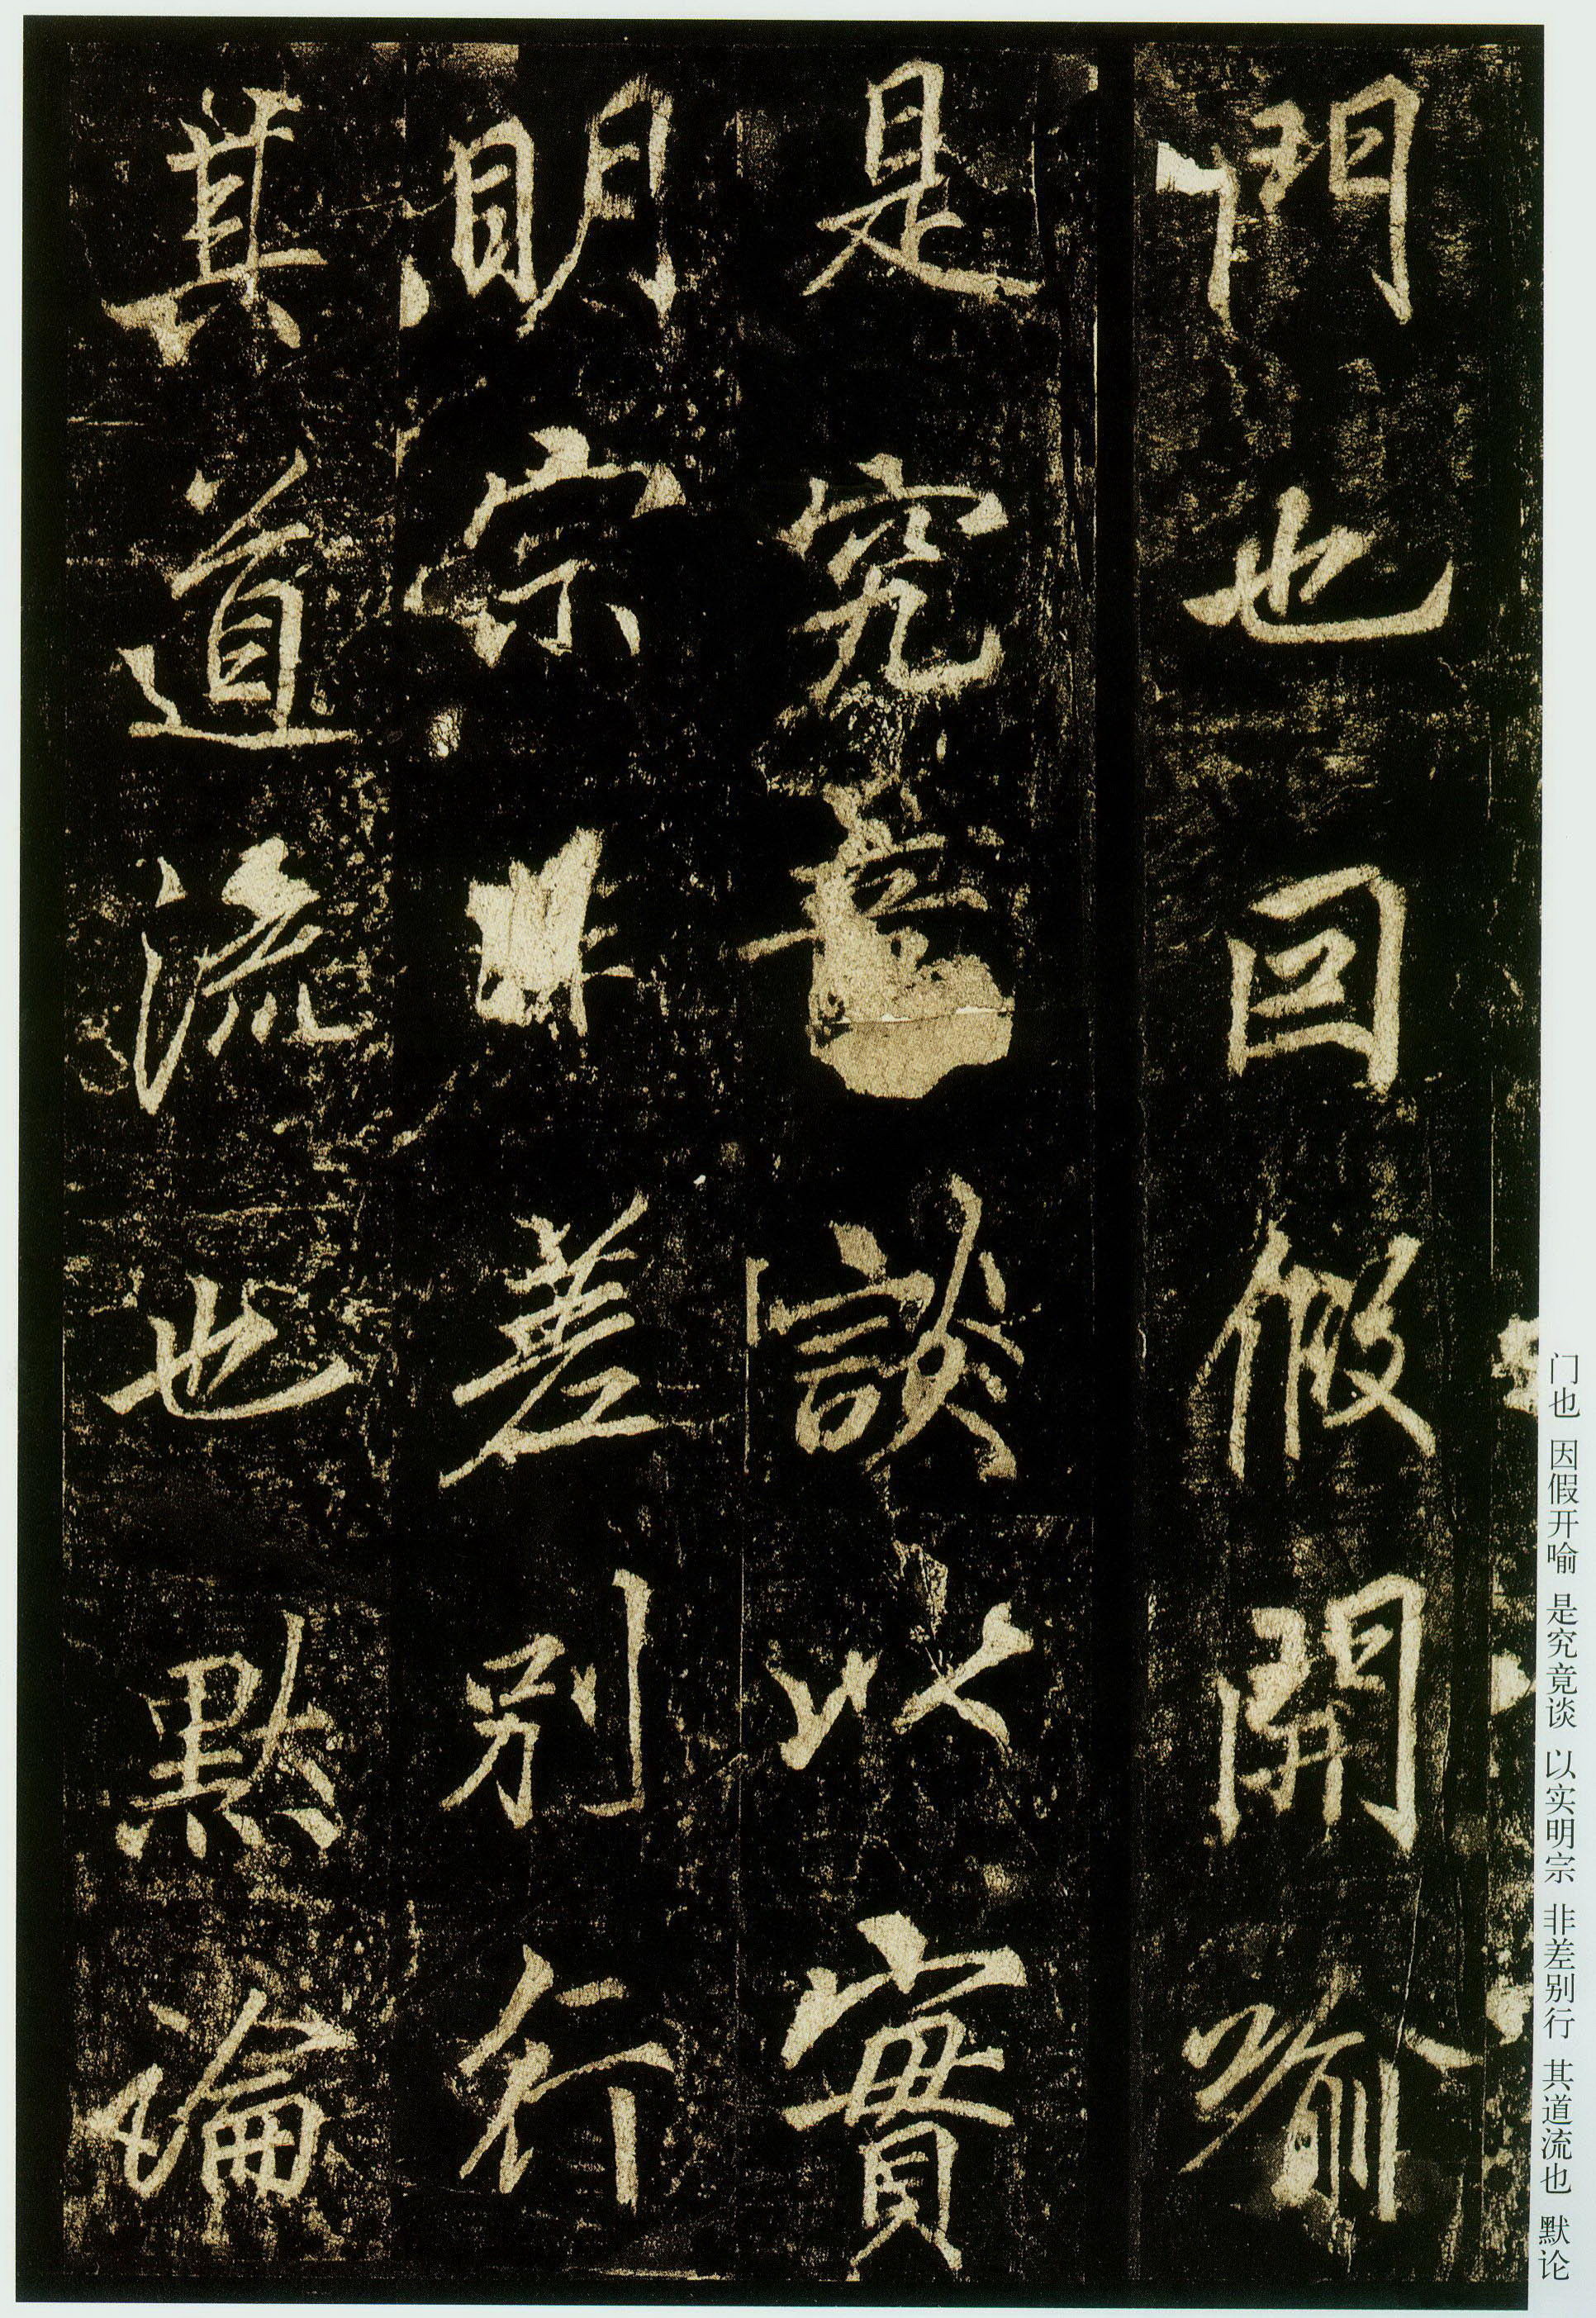 門也因假開喻
是究竟談以實
明宗非差別行
其道流也默論
门也 因假开喻 是究竟谈 以实明宗 非差别行 其道流也 默论